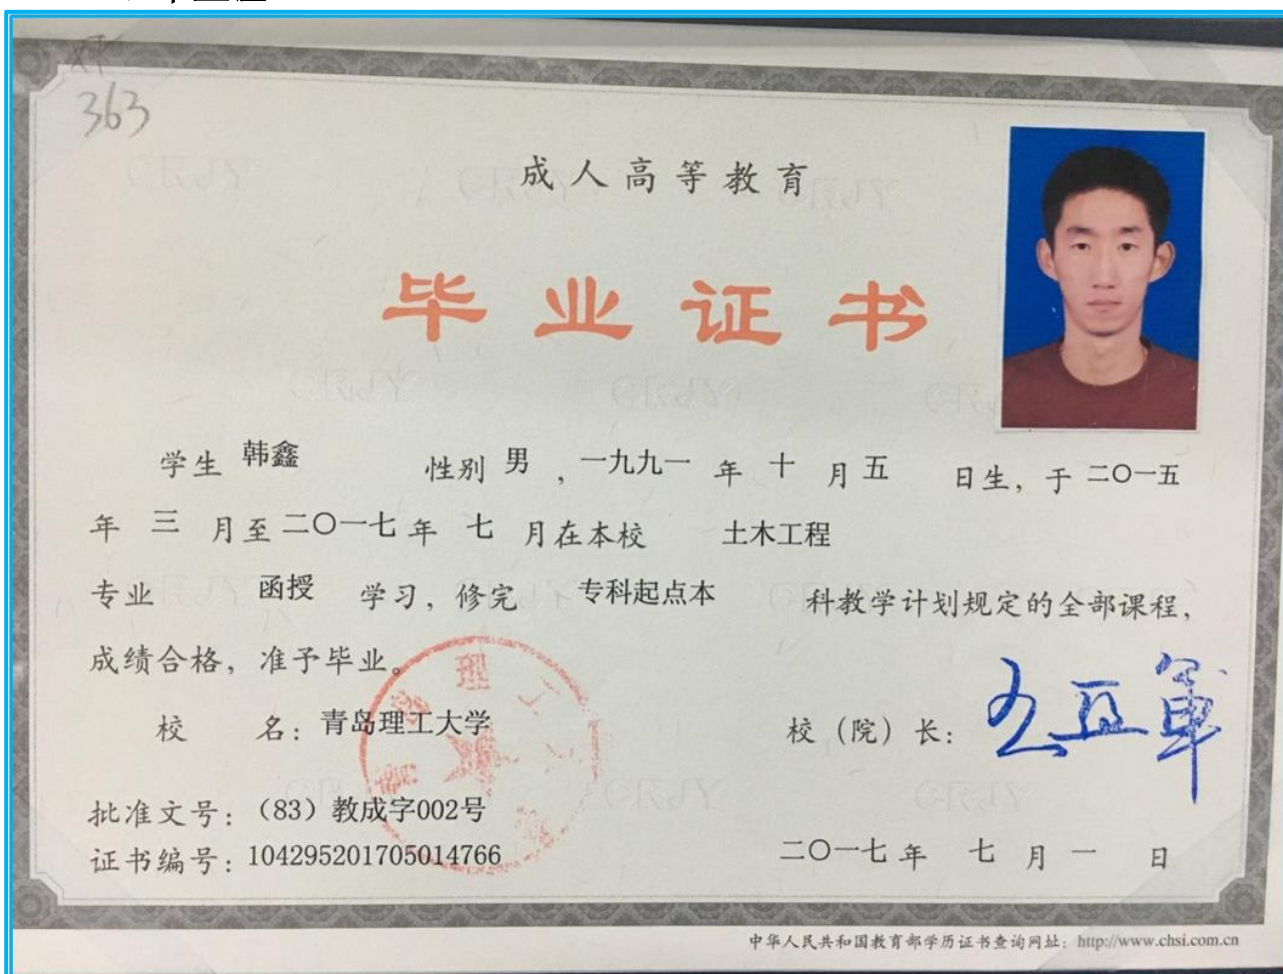 363
成人高等教育
毕业证书
学生 韩鑫 性别 男 , 一九九一 年 十 月 五 日生, 于 二〇一五
年 三 月至 二〇一七 年 七 月在本校 土木工程
专业 函授 学习, 修完 专科起点本 科教学计划规定的全部课程,
成绩合格, 准予毕业。
校 名: 青岛理工大学 校(院)长:
批准文号: (83)教成字002号
证书编号: 104295201705014766 二〇一七 年 七 月 一 日
中华人民共和国教育部学历证书查询网址: http://www.chsi.com.cn